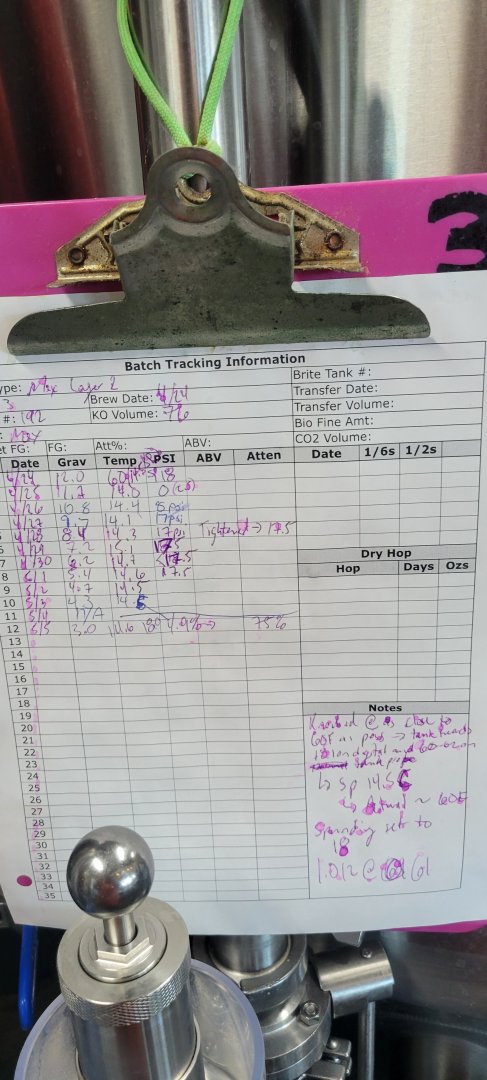 3
Batch Tracking Information
ype: Mex Lager 2
Brite Tank #:
3
Brew Date: 4/24
Transfer Date:
#: 192
KO Volume: 76
Transfer Volume:
Bio Fine Amt:
et FG: FG: Att%: ABV:
CO2 Volume:
Date Grav Temp PSI ABV Atten
Date 1/6s 1/2s
4/24 12.0 60 18
4/25 11.7 14.0 0
4/26 10.8 14.4
4/27 9.7 14.1
5 4/28 8.4 14.3 17 psi Tightened → 17.5
6 4/29 7.2 15.1 17.5
7 4/30 6.2 14.7 17.5
8 5/1 5.4 14.6 17.5
9 5/2 4.7 14.5
10 5/3 4.3
11 5/4 N/A
12 5/5 3.0 14.6 18 4.9% → 75%
13
14
15
16
17
18
19
20
21
22
23
24
25
26
27
28
29
30
31
32
33
34
35
Dry Hop
Hop Days Ozs
Notes
Knocked @ as close to
60F as poss → tank reads
on digital and
↳ SP 14.5
↳ Actual ~ 60F
Spunding set to
18
1.012 @ 61